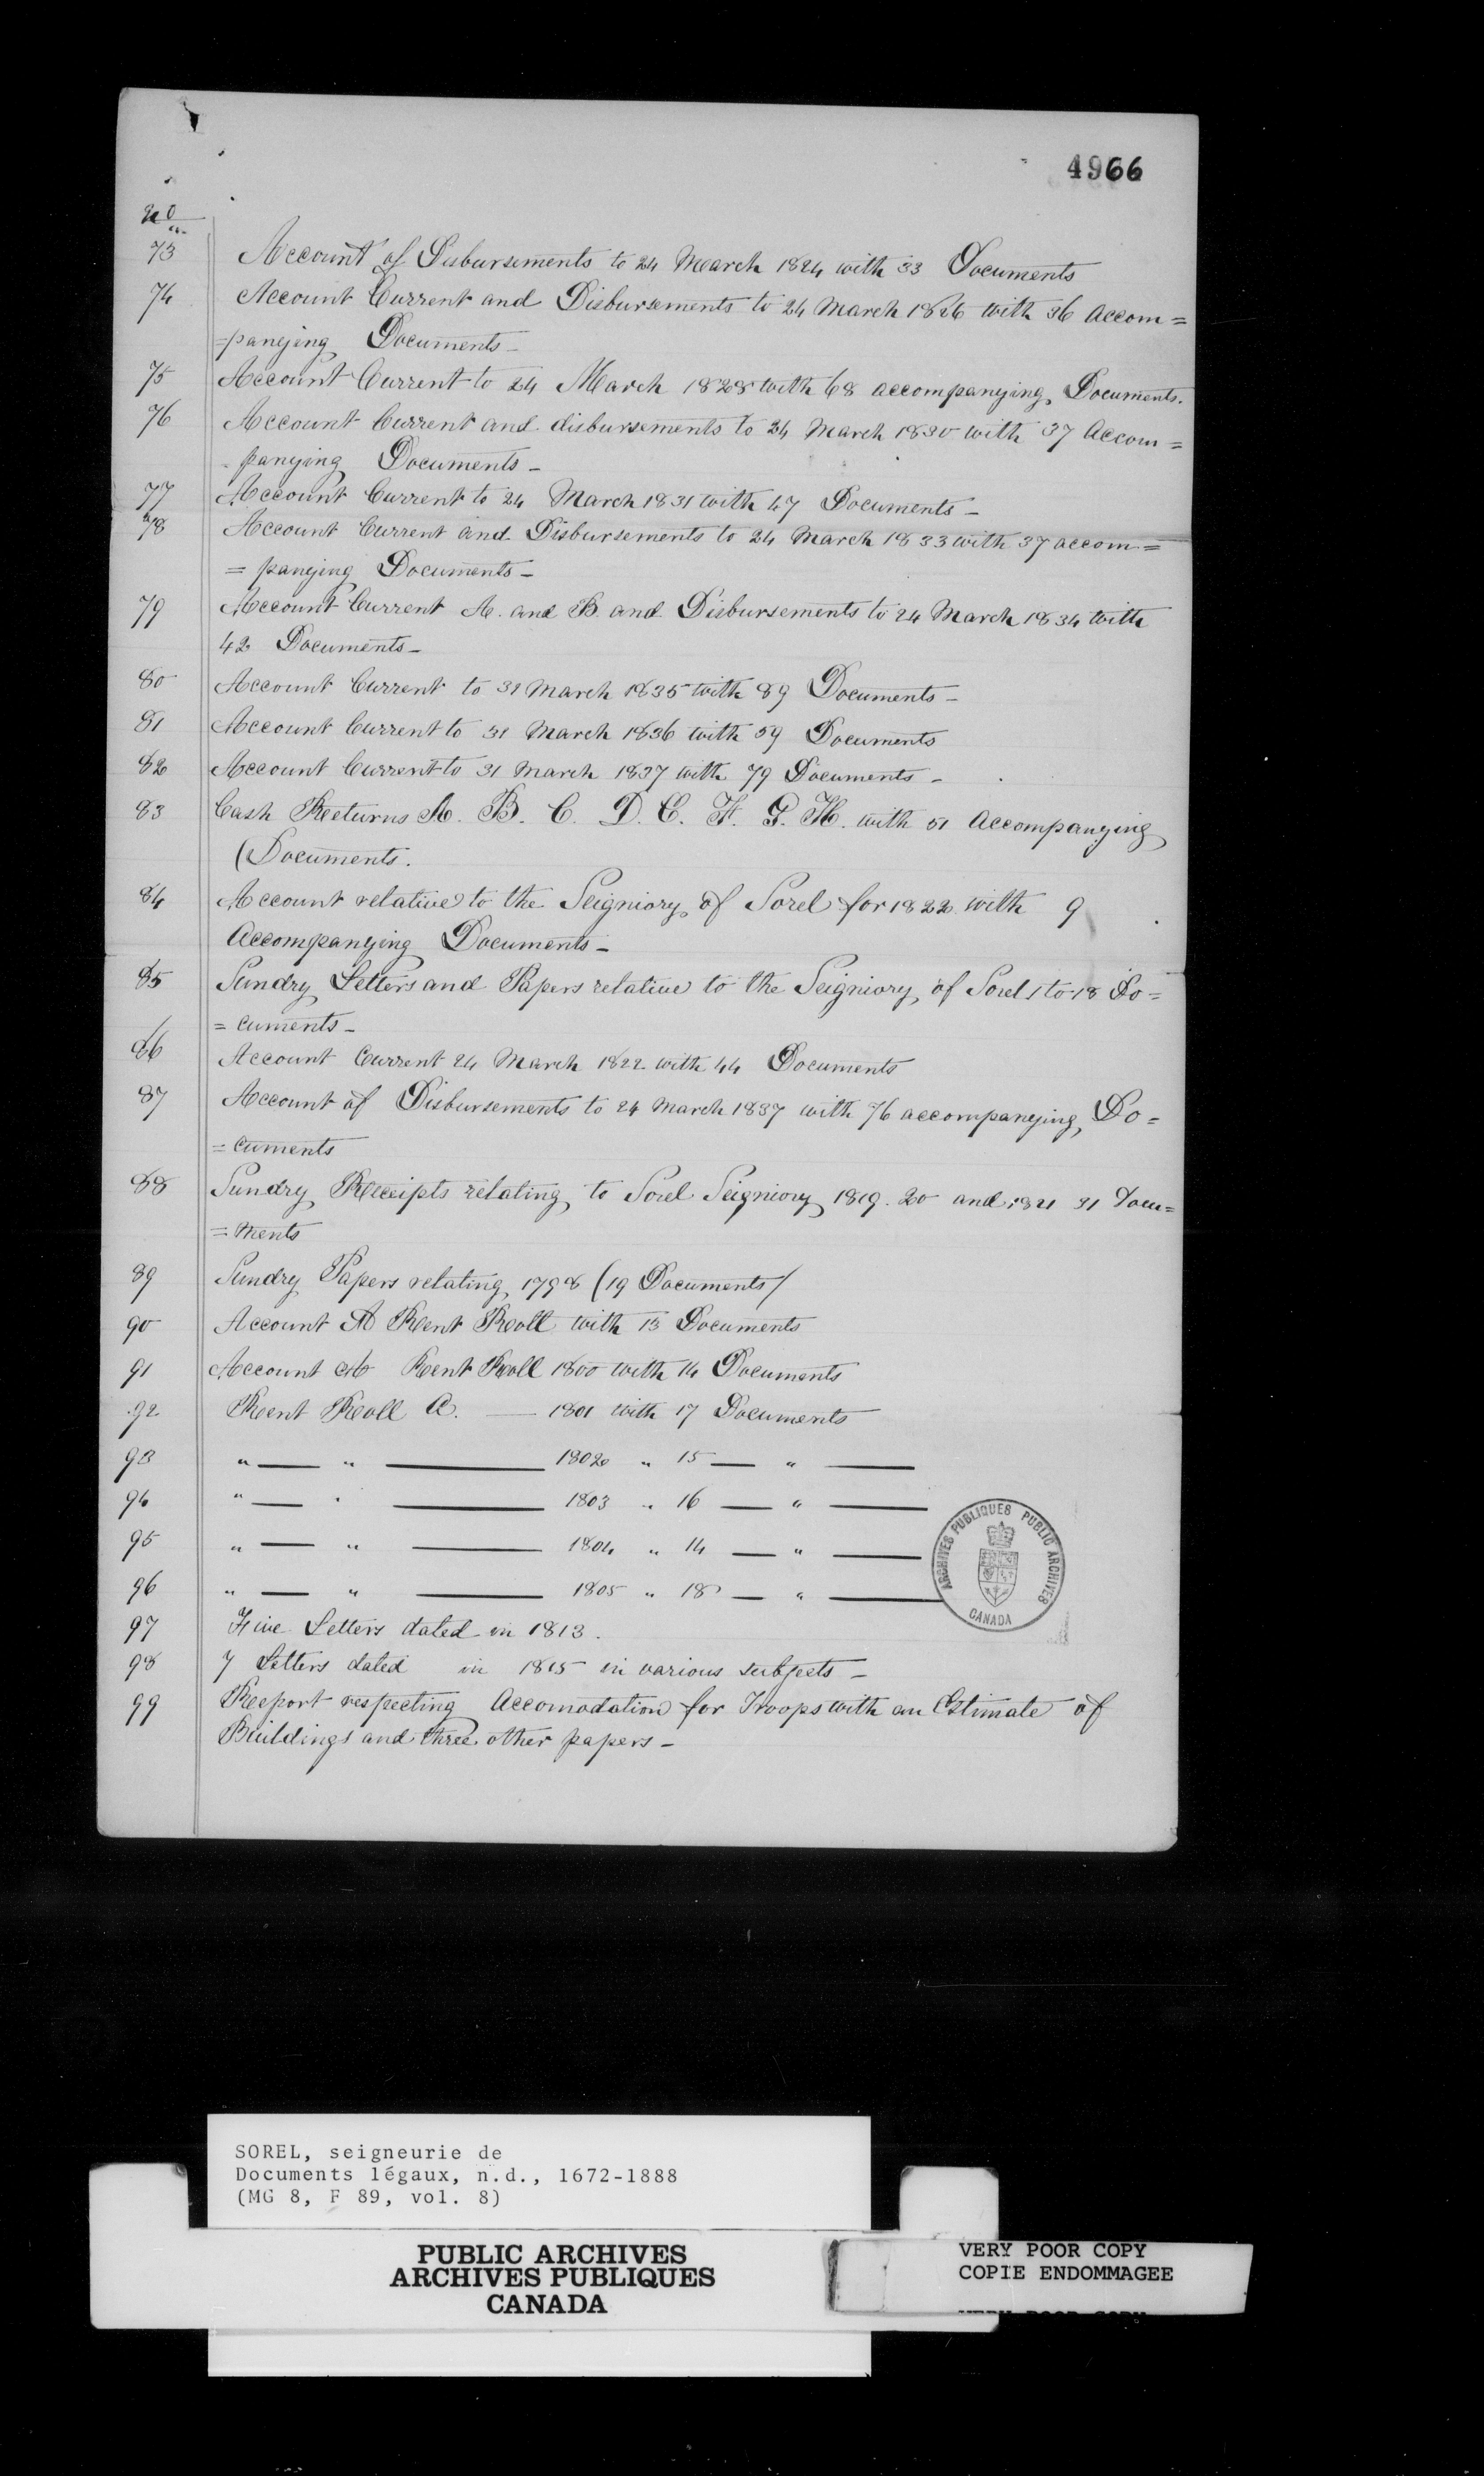 4966
No
73 Account of Disbursements to 24 March 1824 with 33 Documents
74 Account Current and Disbursements to 24 March 1826 with 36 Accom=
=panying Documents_
75 Account Current to 24 March 1828 with 68 accompanying Documents.
76 Account Current and disbursements to 24 March 1830 with 37 Accom=
panying Documents_
77 Account Current to 24 March 1831 with 47 Documents_
78 Account Current and Disbursements to 24 March 1833 with 37 accom=
=panying Documents_
79 Account Current A. and B. and Disbursements to 24 March 1834 with
42 Documents_
80 Account Current to 31 March 1835 with 89 Documents_
81 Account Current to 31 March 1836 with 59 Documents
82 Account Current to 31 March 1837 with 79 Documents_
83 Cash Returns A. B. C. D. E. F. G. H. with 51 Accompanying
(Documents.
84 Account relative to the Seigniory of Sorel for 1822 with 9
Accompanying Documents_
85 Sundry Letters and Papers relative to the Seigniory of Sorel 1 to 18 Do=
=cuments_
86 Account Current 24 March 1822 with 44 Documents
87 Account of Disbursements to 24 March 1837 with 76 accompanying Do=
=cuments
88 Sundry Receipts relating to Sorel Seigniory 1819. 20 and 1821 31 Docu=
=ments
89 Sundry Papers relating 1798 (19 Documents/
90 Account A Rent Roll with 13 Documents
91 Account A Rent Roll 1800 with 14 Documents
92 Rent Roll A. — 1801 with 17 Documents
93 " — " — 1802 " 15 — " —
94 " — " — 1803 " 16 — " —
95 " — " — 1804 " 14 — " —
96 " — " — 1805 " 18 — " —
97 Five Letters dated in 1813.
98 7 Letters dated in 1815 in various subjects_
99 Report respecting Accomodation for Troops with an Estimate of
Buildings and three other papers_
ARCHIVES PUBLIQUES PUBLIC ARCHIVES
CANADA
SOREL, seigneurie de
Documents légaux, n.d., 1672-1888
(MG 8, F 89, vol. 8)
PUBLIC ARCHIVES
ARCHIVES PUBLIQUES
CANADA
VERY POOR COPY
COPIE ENDOMMAGEE
VERY POOR COPY